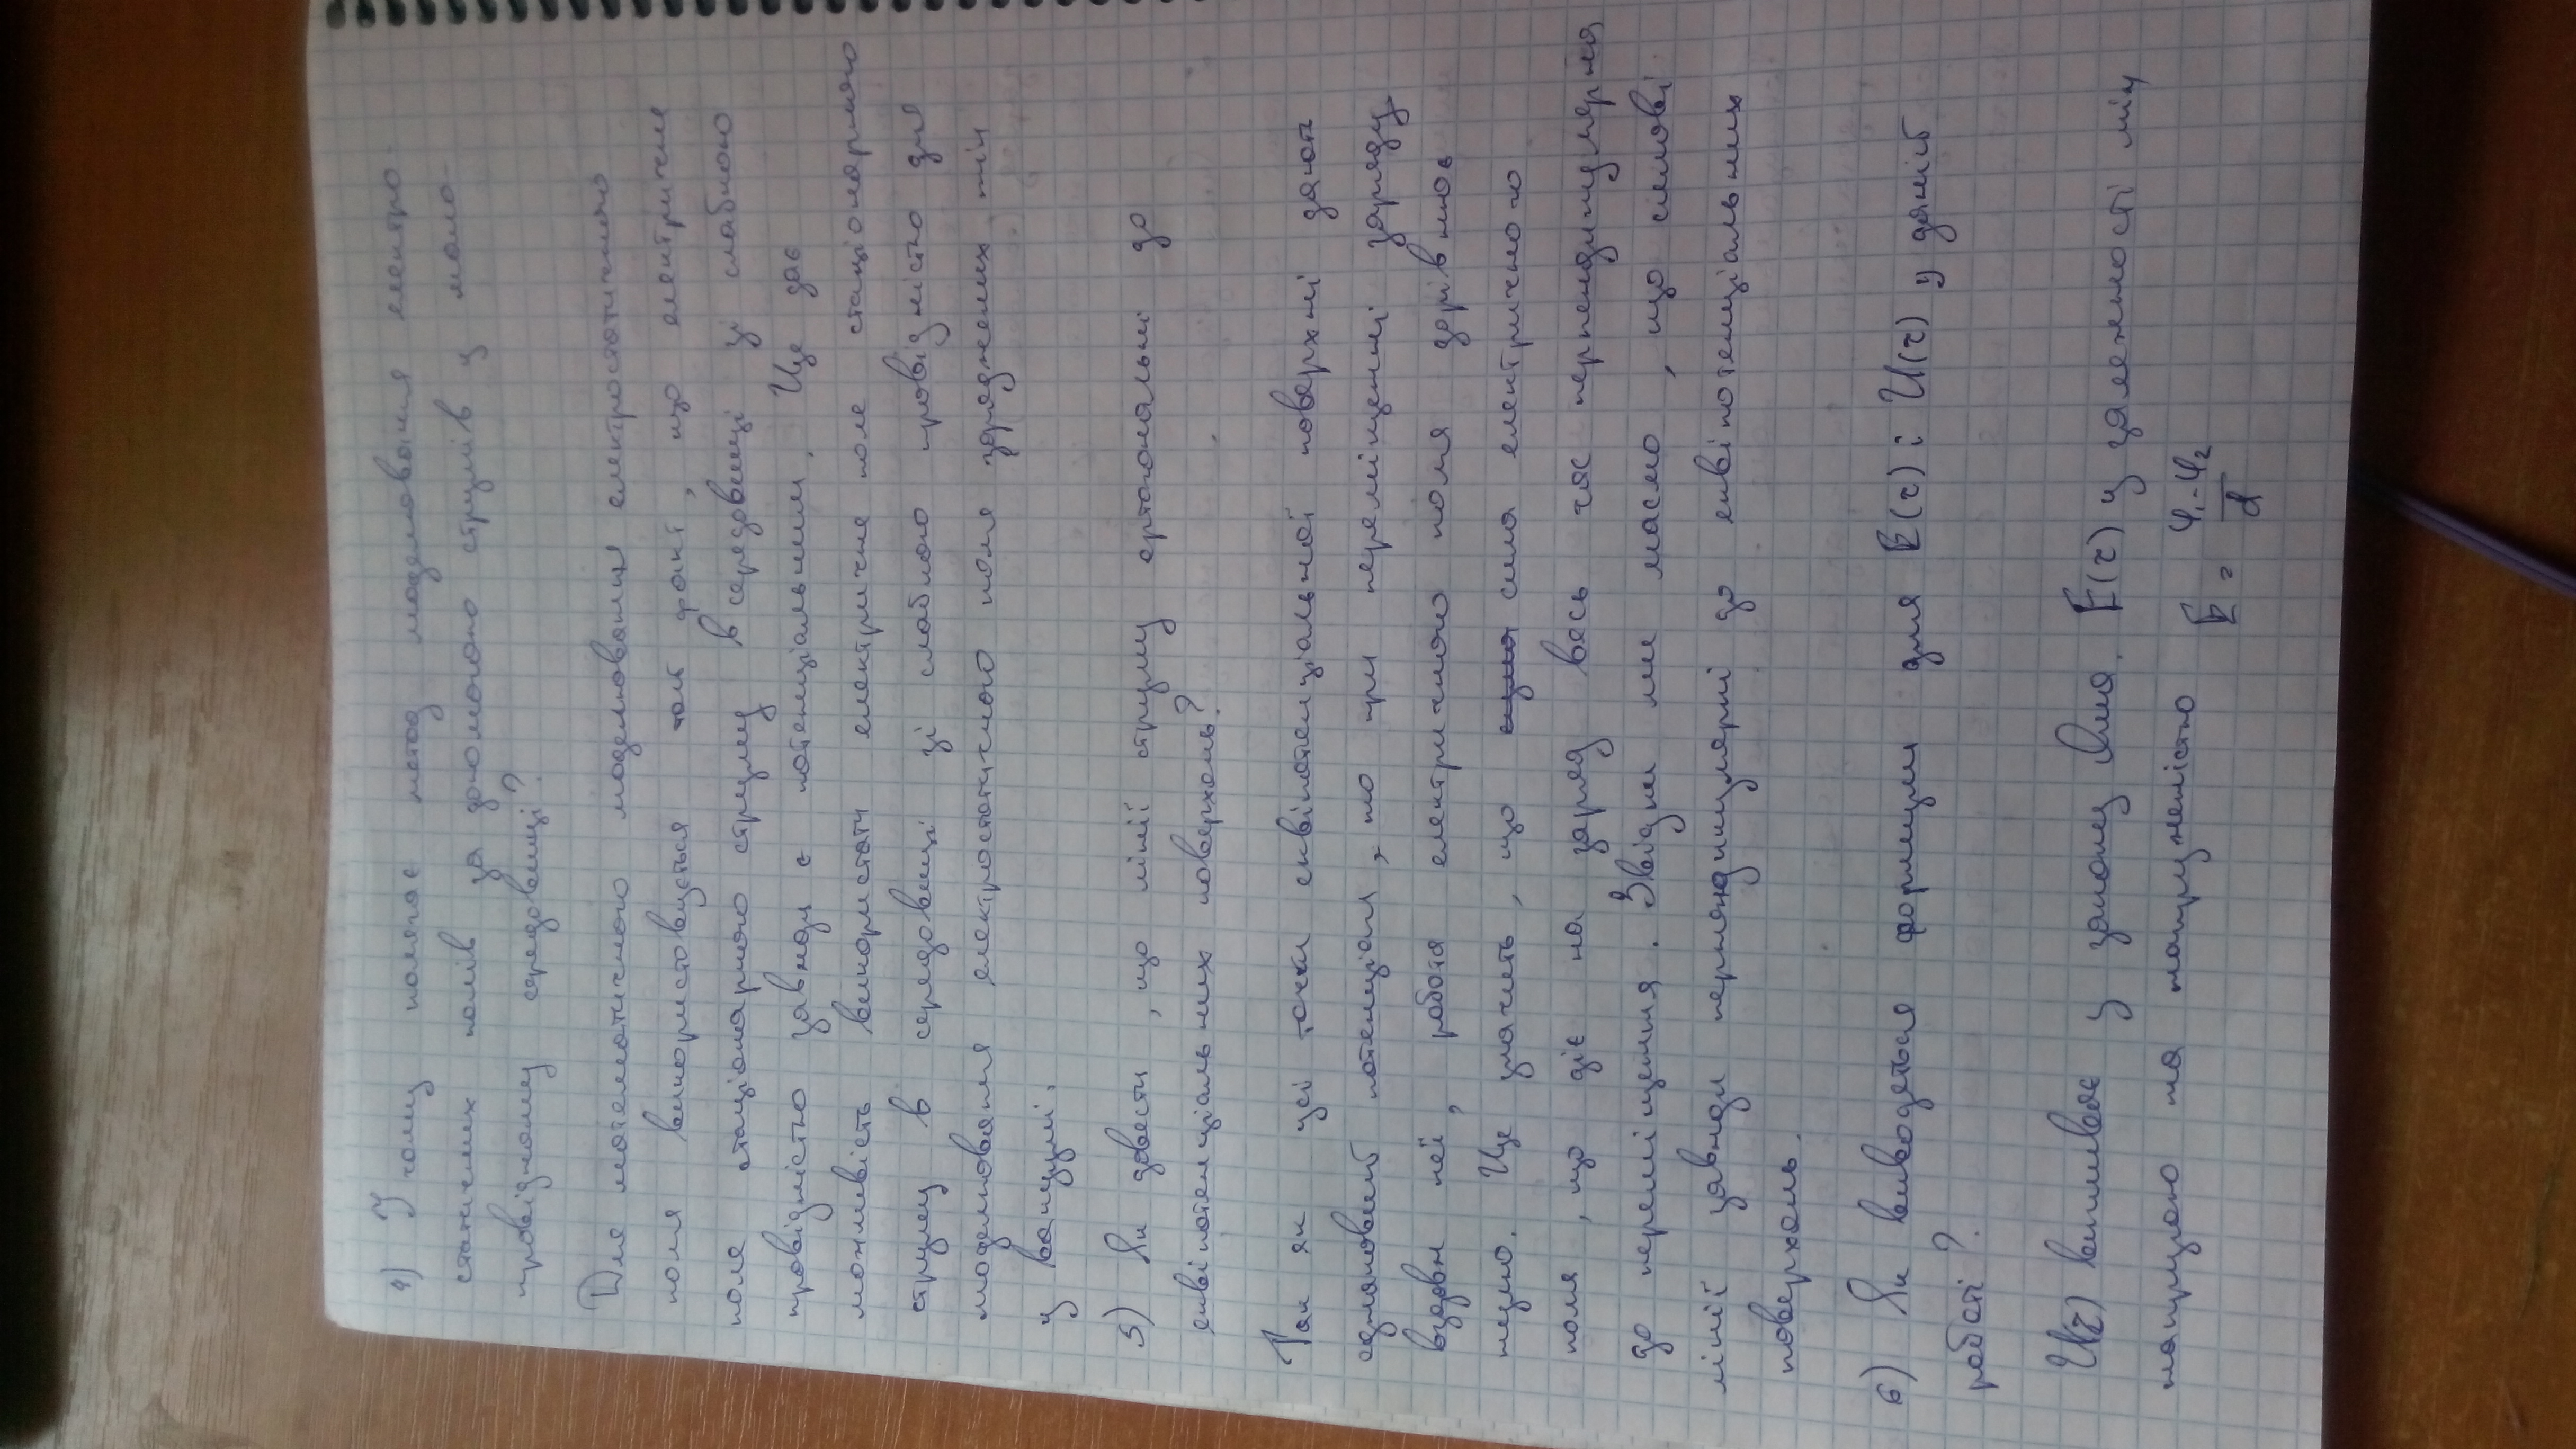 4) У чому полягає метод моделювання електро-
статичних полів за допомогою струмів у мало-
провідному середовищі?
Для математичного моделювання електростатичного
поля використовується той факт, що електричне
поле стаціонарного струму в середовищі зі слабкою
провідністю завжди є потенціальним. Це дає
можливість використати електричне поле стаціонарного
струму в середовищі зі слабкою провідністю для
моделювання електростатичного поля заряджених тіл
у вакуумі.
5) Як довести, що лінії струму ортогональні до
еквіпотенціальних поверхонь?
Так як усі точки еквіпотенціальної поверхні мають
однаковий потенціал, то при переміщенні заряду
вздовж неї, робота електричного поля дорівнює
нулю. Це значить, що сила електричного
поля, що діє на заряд весь час перпендикулярна
до переміщення. Звідки ми маємо, що силові
лінії завжди перпендикулярні до еквіпотенціальних
поверхонь.
6) Як виводяться формули для E(r) і U(r) у даній
роботі?
U(r) випливає у закону Ома. E(r) у залежності між
напругою та напруженістю E = φ₁-φ₂/d